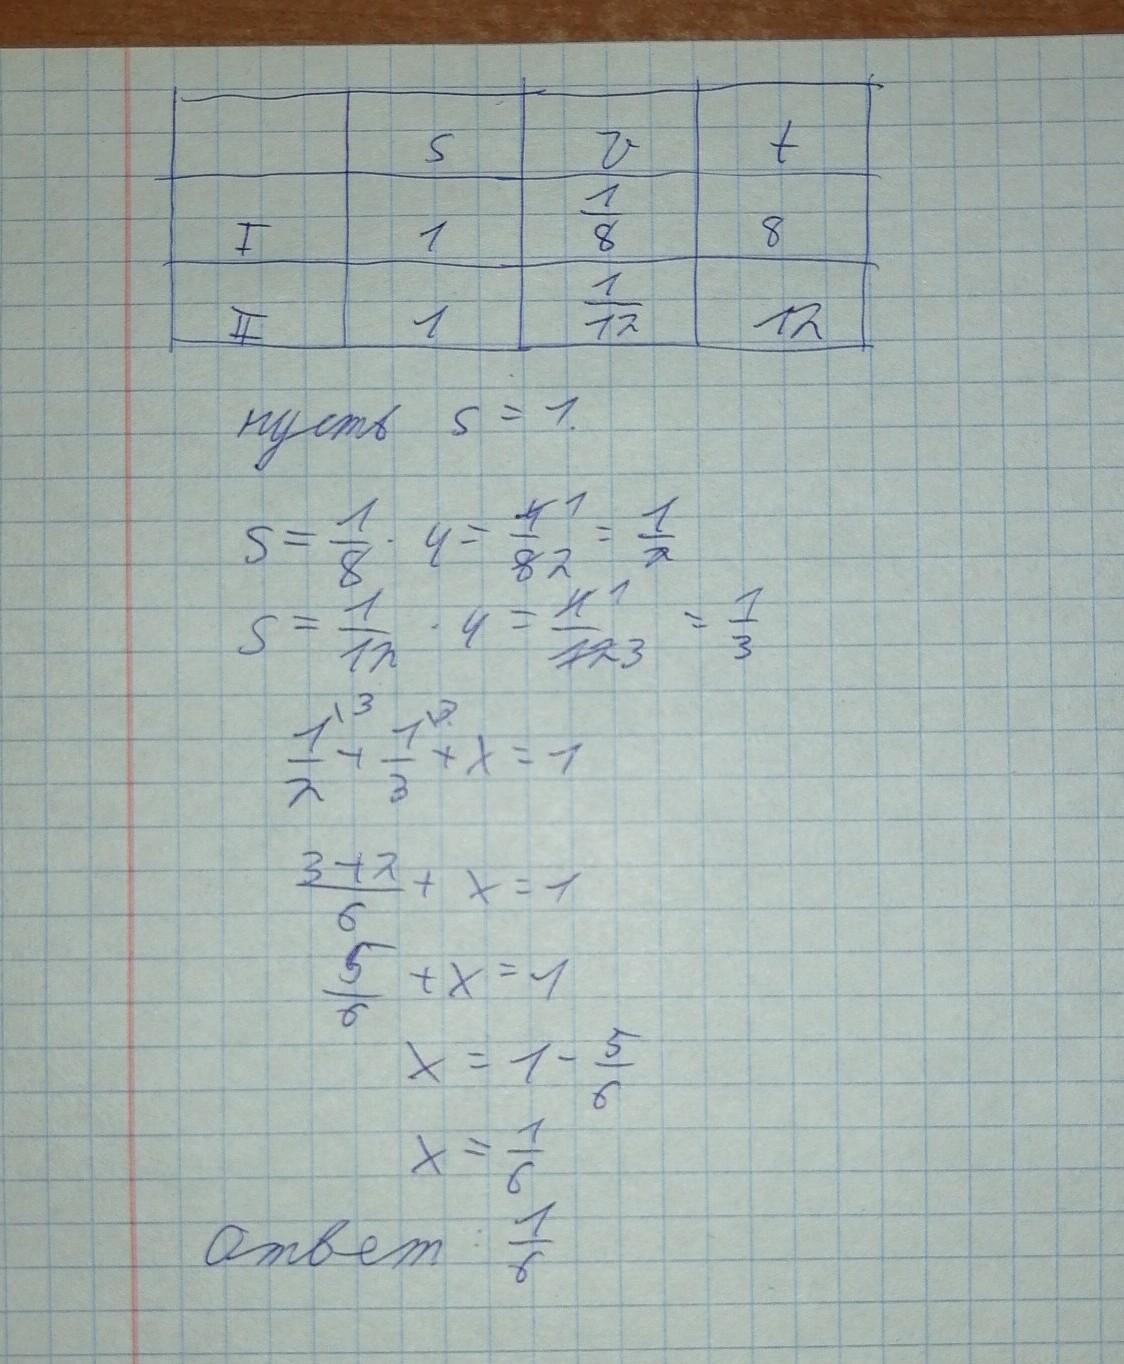 s v t
I 1 1/8 8
II 1 1/12 12
пусть s = 1.
S = 1/8 · 4 = 4 1/8 2 = 1/2
S = 1/12 · 4 = 4 1/12 3 = 1/3
1\3/2 + 1\2/3 + x = 1
3+2/6 + x = 1
5/6 + x = 1
x = 1 - 5/6
x = 1/6
Ответ : 1/6